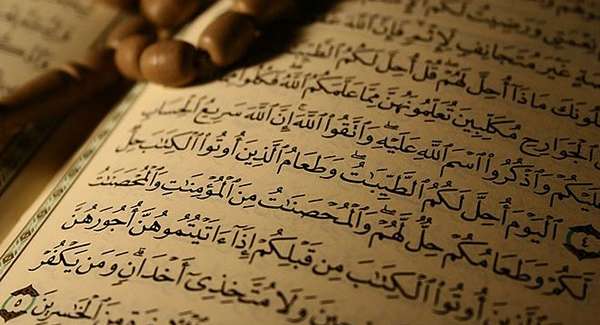 وَرَضِيتُ
غَيْرَ مُتَجَانِفٍ لِّإِثْمٍ فَإِنَّ ٱللَّهَ
مَاذَآ أُحِلَّ لَهُمْ قُلْ أُحِلَّ لَكُمُ ٱلطَّيِّبَـ
ٱلْجَوَارِحِ مُكَلِّبِينَ تُعَلِّمُونَهُنَّ مِمَّا عَلَّمَكُمُ ٱللَّهُ فَكُلُوا۟
عَلَيْكُمْ وَٱذْكُرُوا۟ ٱسْمَ ٱللَّهِ عَلَيْهِ وَٱتَّقُوا۟ ٱللَّهَ إِنَّ ٱللَّهَ سَرِيعُ ٱلْحِسَابِ
٤ ٱلْيَوْمَ أُحِلَّ لَكُمُ ٱلطَّيِّبَـٰتُ وَطَعَامُ ٱلَّذِينَ أُوتُوا۟ ٱلْكِتَـٰبَ حِلٌّ
لَّكُمْ وَطَعَامُكُمْ حِلٌّ لَّهُمْ وَٱلْمُحْصَنَـٰتُ مِنَ ٱلْمُؤْمِنَـٰتِ وَٱلْمُحْصَنَـٰتُ
ٱلَّذِينَ أُوتُوا۟ ٱلْكِتَـٰبَ مِن قَبْلِكُمْ إِذَآ ءَاتَيْتُمُوهُنَّ أُجُورَهُنَّ
ـحِينَ وَلَا مُتَّخِذِىٓ أَخْدَانٍ وَمَن يَكْفُرْ
مِنَ ٱلْخَـٰسِرِينَ ٥